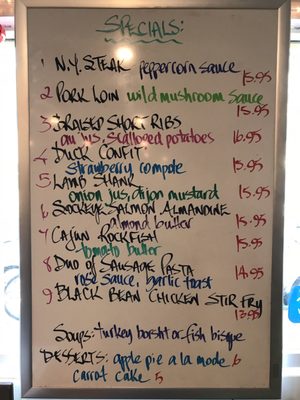 SPECIALS:
1 N.Y. STEAK peppercorn sauce
15.95
2 PORK LOIN wild mushroom sauce
15.95
3 BRAISED SHORT RIBS
au jus, scalloped potatoes 16.95
4 DUCK CONFIT
strawberry compote 15.95
5 LAMB SHANK
onion jus, dijon mustard 15.95
6 SOCKEYE SALMON ALMANDINE
almond butter 15.95
7 CAJUN ROCKFISH
tomato butter 15.95
8 DUO OF SAUSAGE PASTA
rose sauce, garlic toast 14.95
9 BLACK BEAN CHICKEN STIR FRY
13.95
Soups: turkey borsht or fish bisque
DESSERTS: apple pie a la mode 6
carrot cake 5